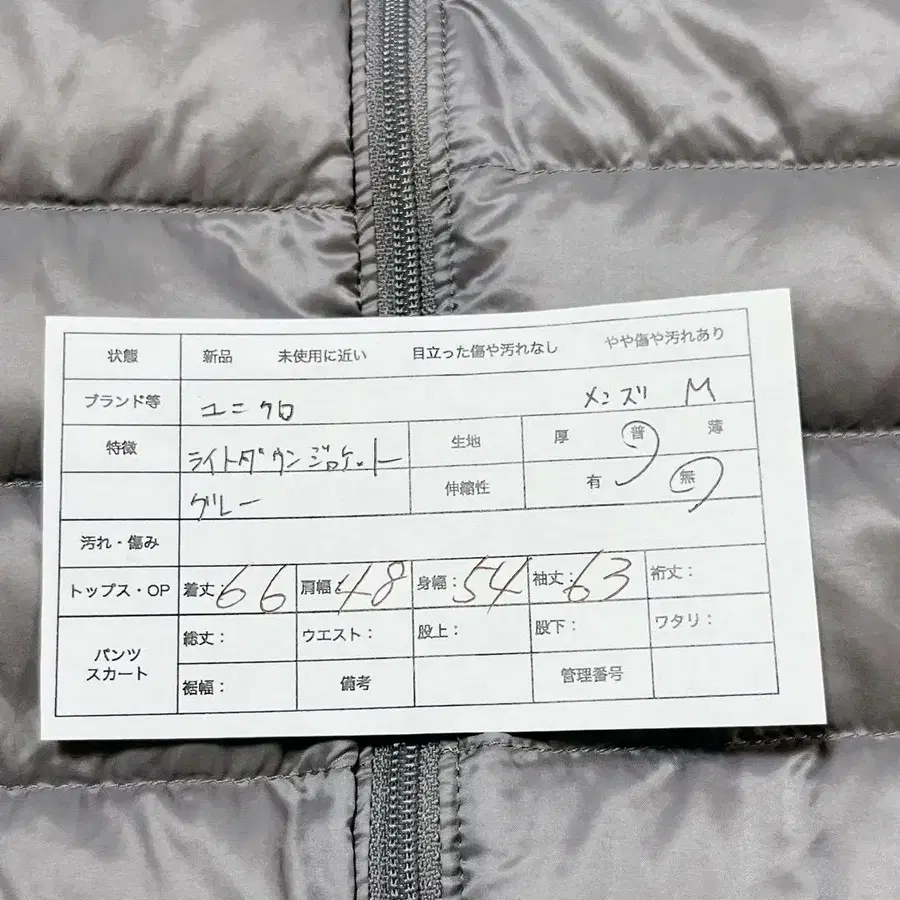 状態 新品 未使用に近い 目立った傷や汚れなし やや傷や汚れあり
ブランド等 ユニクロ メンズ M
特徴 ライトダウンジャケット 生地 厚 普 薄
グレー 伸縮性 有 無
汚れ・傷み
トップス・OP 着丈:66 肩幅:48 身幅:54 袖丈:63 裄丈:
パンツ スカート 総丈: ウエスト: 股上: 股下: ワタリ:
裾幅: 備考 管理番号